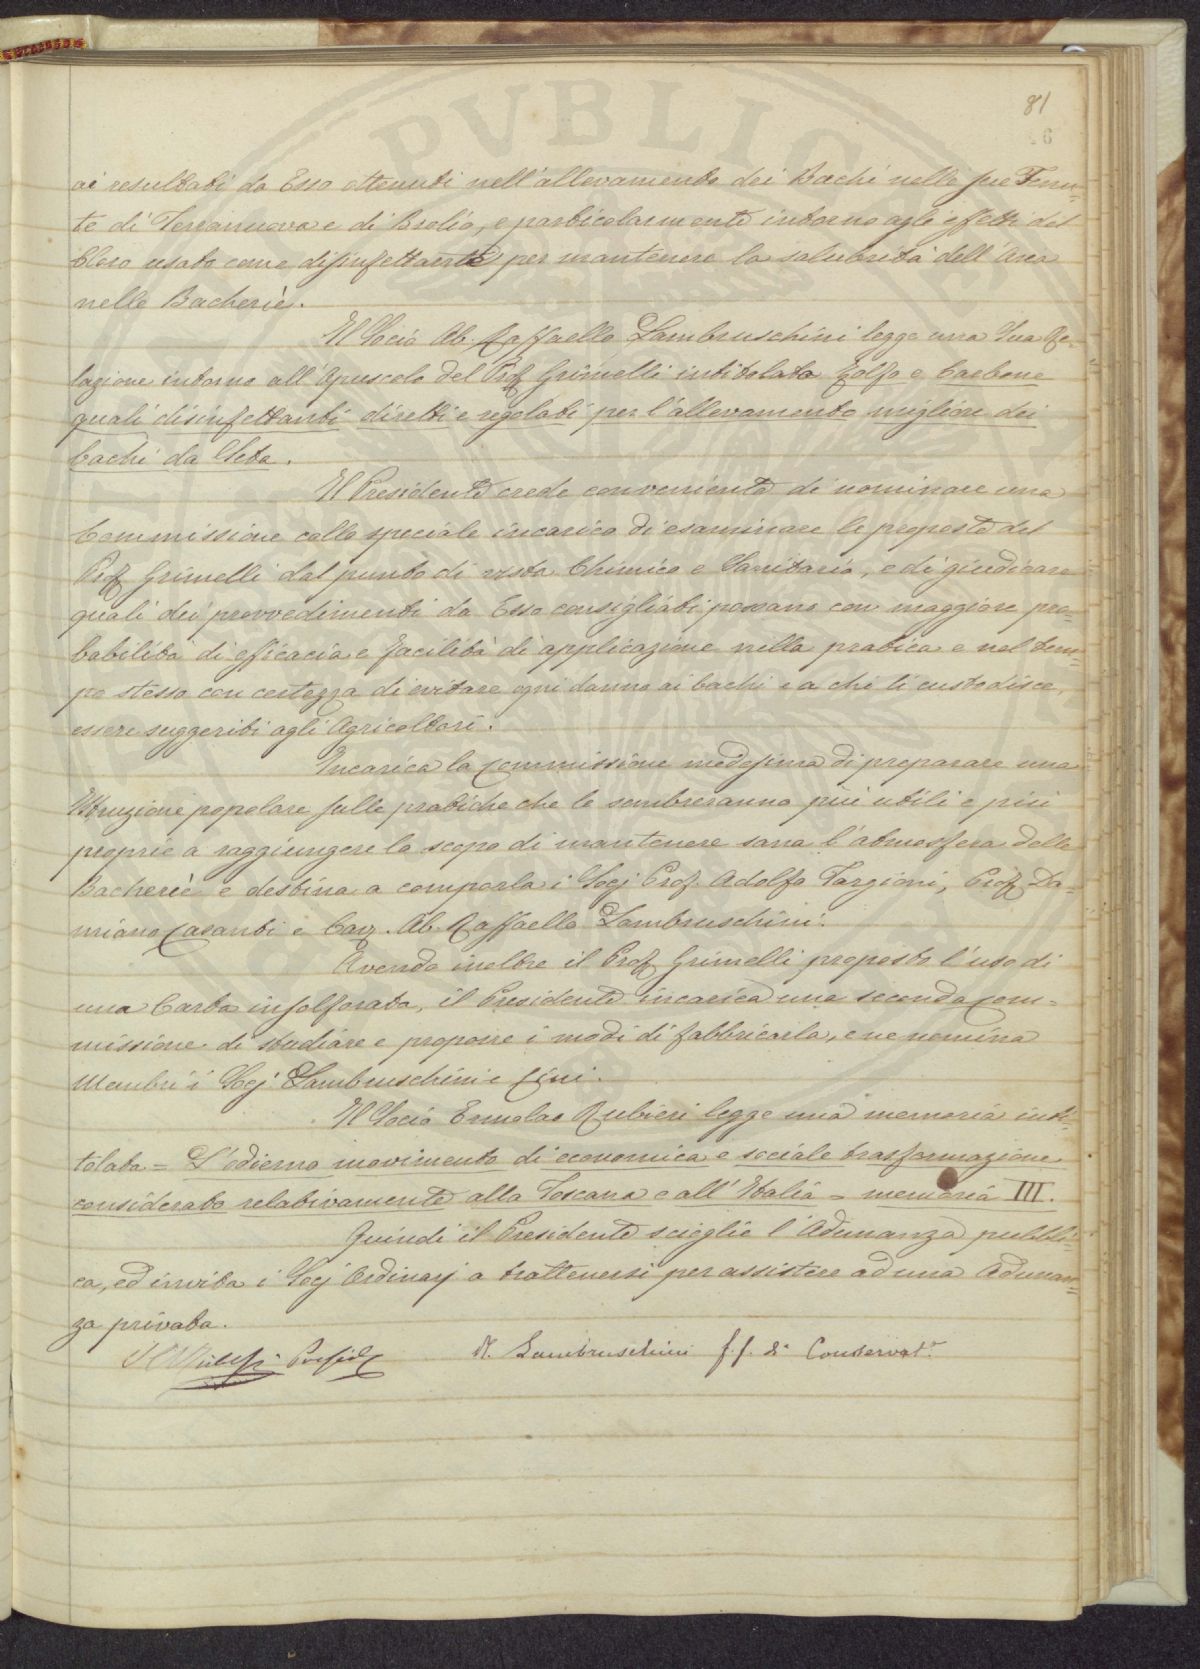 81
6
PVBLICE
ai resultati da Esso ottenuti nell'allevamento dei Bachi nelle sue Tenu=
te di Terranuova e di Brolio, e particolarmente intorno agli effetti del
Cloro usato come disinfettante per mantenere la salubrità dell'Aria
nelle Bacherie.
Il Socio Ab. Raffaello Lambruschini legge una Sua Re=
lazione intorno all'Opuscolo del Prof. Grimelli intitolato Zolfo e Carbone
quali disinfettanti diretti e regolati per l'allevamento migliore dei
bachi da Seta.
Il Presidente crede conveniente di nominare una
Commissione collo speciale incarico di esaminare le proposte del
Prof. Grimelli dal punto di vista Chimico e Sanitario, e di giudicare
quali dei provvedimenti da Esso consigliati possano con maggiore pro=
babilità di efficacia e facilità di applicazione nella pratica e nel tem=
po stesso con certezza di evitare ogni danno ai bachi e a chi li custodisce,
essere suggeriti agli Agricoltori.
Incarica la Commissione medesima di preparare una
Istruzione popolare sulle pratiche che le sembreranno più utili e più
proprie a raggiungere lo scopo di mantenere sana l'atmosfera delle
Bacherie e destina a comporla i Socj Prof. Adolfo Targioni, Prof. Da=
miano Casanti e Cav. Ab. Raffaello Lambruschini.
Avendo inoltre il Prof. Grimelli proposto l'uso di
una Carta insolforata, il Presidente incarica una seconda Com=
missione di studiare e proporre i modi di fabbricarla, e ne nomina
Membri i Socj Lambruschini e Cini.
Il Socio Ermolao Rubieri legge una memoria inti=
tolata = L'odierno movimento di economica e sociale trasformazione
considerato relativamente alla Toscana e all'Italia = memoria III.
Quindi il Presidente scioglie l'Adunanza pubbli=
ca, ed invita i Socj Ordinarj a trattenersi per assistere ad una Adunan=
za privata.
Preside
R. Lambruschini f.f. di Conservat.